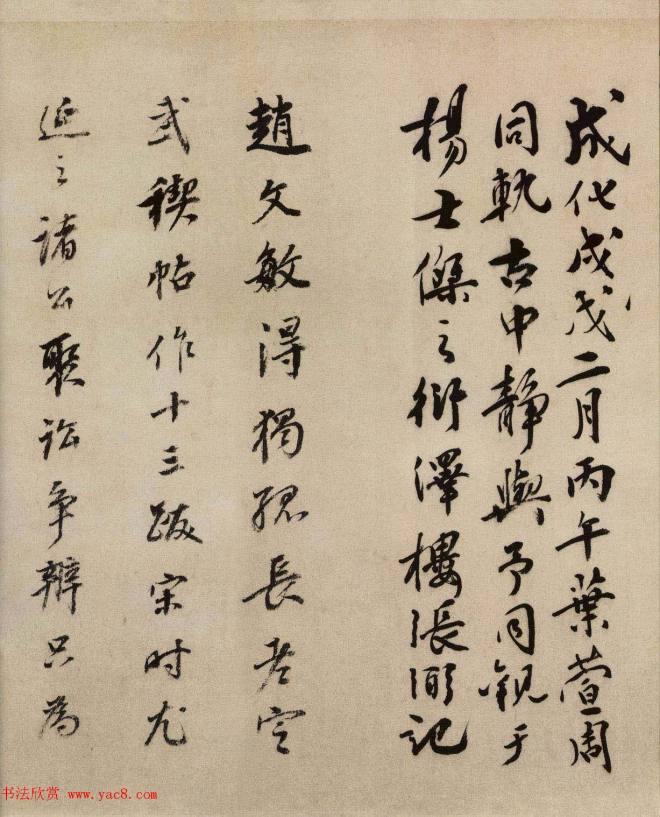 成化戊戌二月丙午葉萱周
同軌古中靜與予同觀于
楊士傑之衍澤樓張弼記
趙文敏得獨孤長老定
武禊帖作十三跋宋时尤
延之諸公聚訟争辨只為
书法欣赏 www.yac8.com